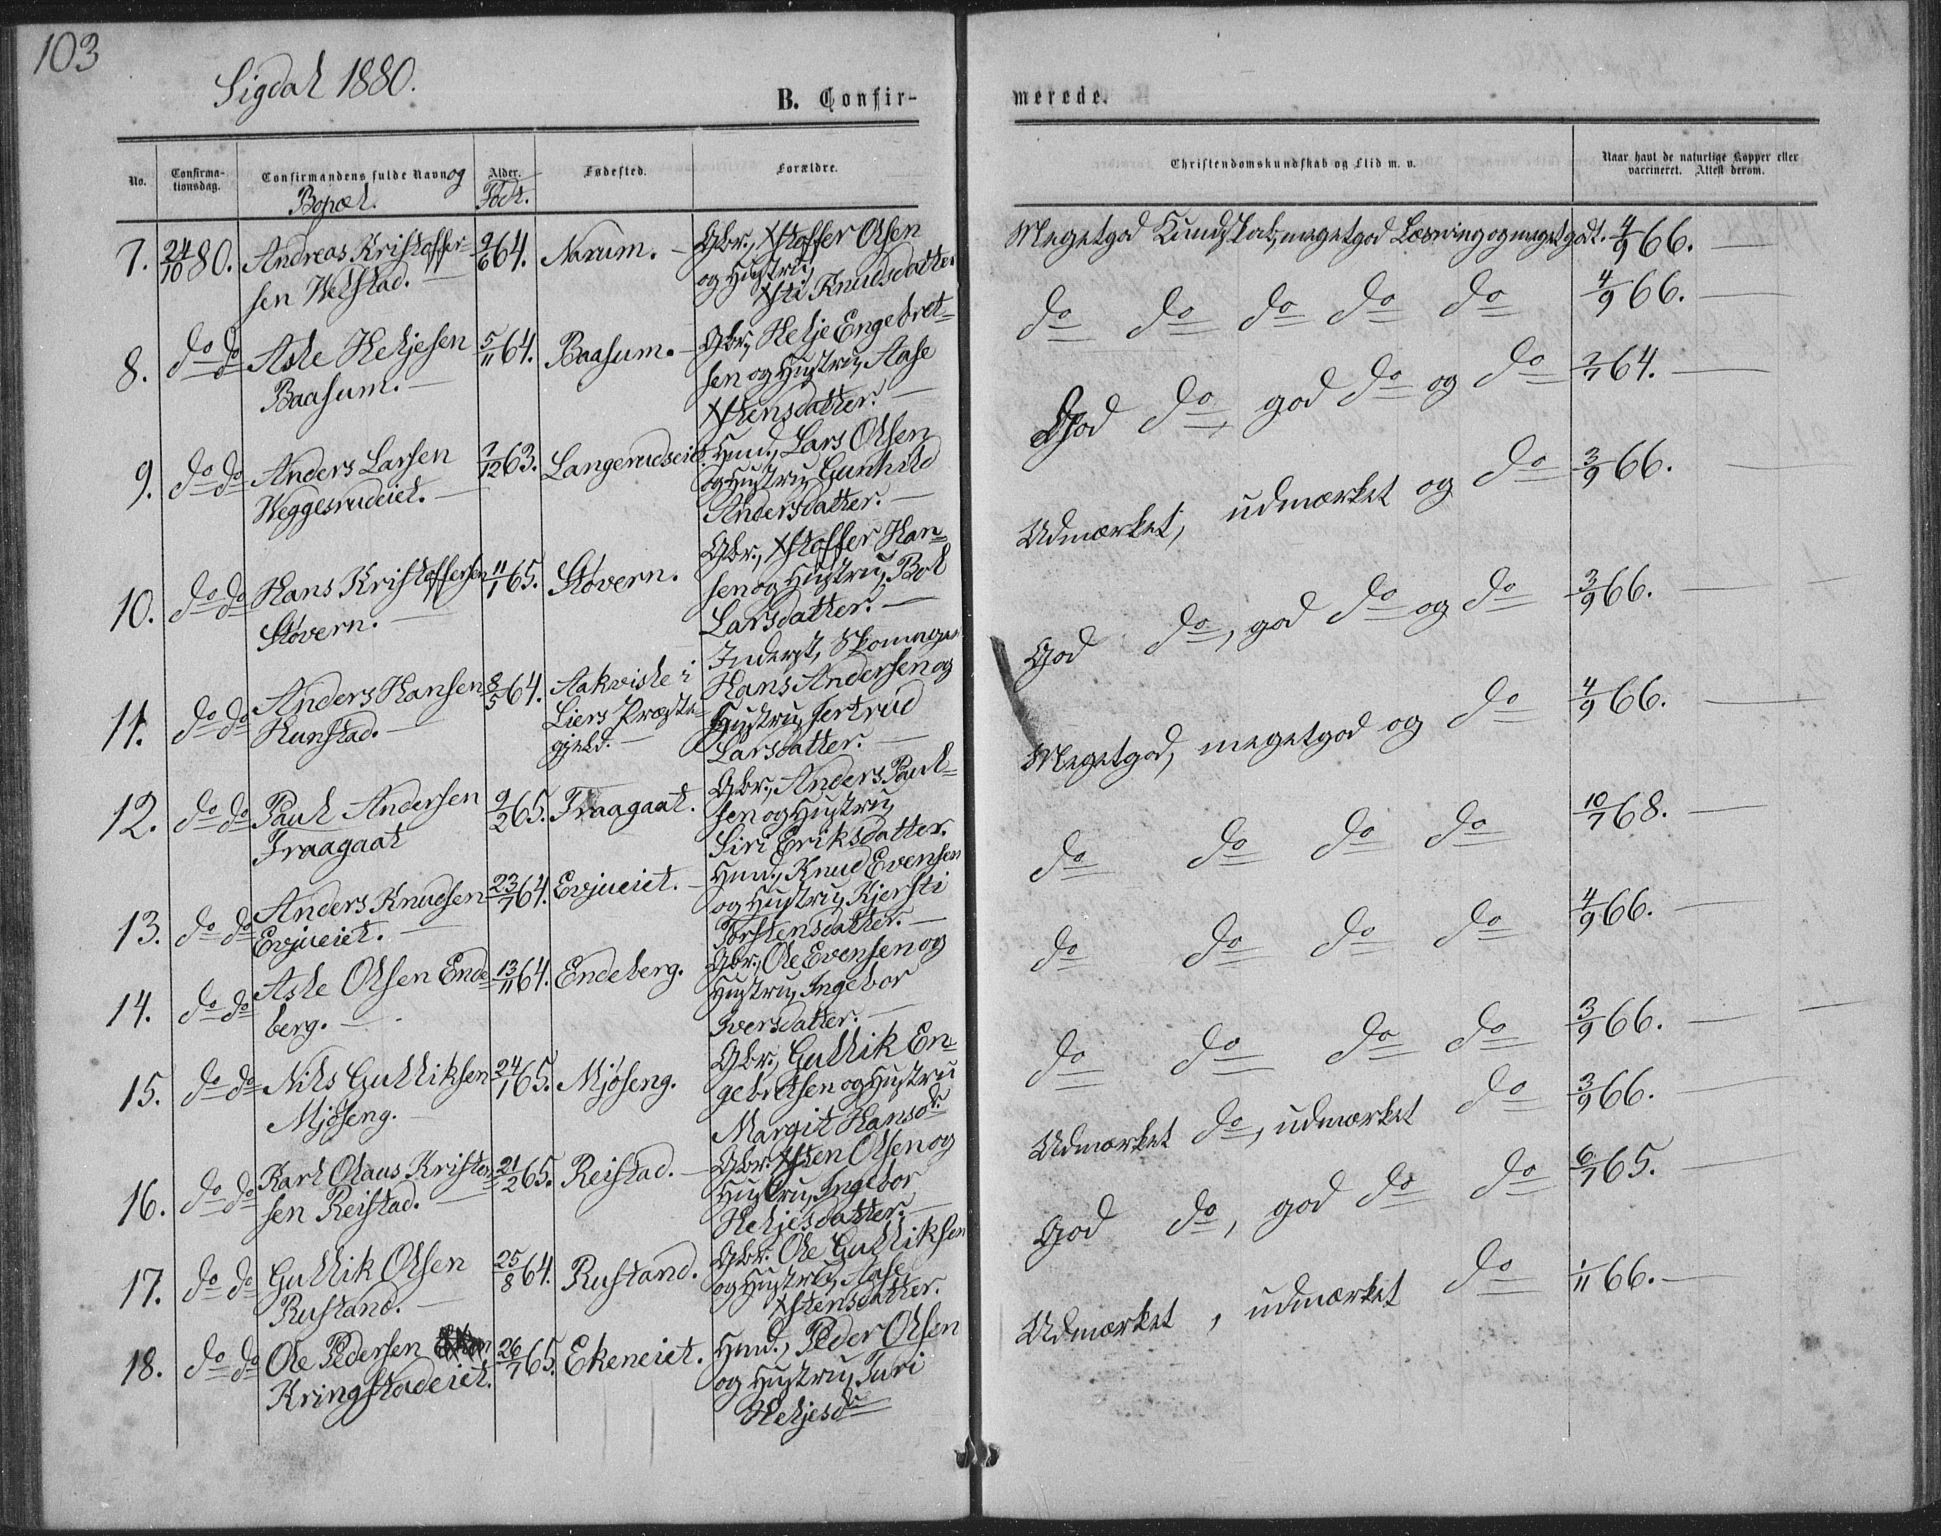 103
Sigdal 1880.
B. Confir-
merede.
No.
Confirma-
tionsdag.
Confirmandens fulde Navn og
Bopæl.
Alder.
Född.
Fødested.
Forældre.
Christendomskundskab og Flid m. v.
Naar havt de naturlige Kopper eller
vaccineret. Attest derom.
7. 24/10 80. Andreas Kristoffer-
sen Velstad. —
2/6 64. Narum. —
Gbr., Xstoffer Olsen
og Hustru,
Xsti Knudsdatter
Megetgod Kundskab, megetgod Læsning og meget godt. 4/9 66. —
8. do do Asle Heljesen
Baasum. —
5/11 64. Baasum. —
Gbr., Helje Engebret-
sen og Hustru, Aase
Xstensdatter. —
do do do do do 4/9 66. —
9. do do Anders Larsen
Veggesrudeiet. —
7/12 63. Langerudseiet.
Hmd., Lars Olsen
og Hustru Gunhild
Andersdatter. —
God do, god do og do 2/7 64. —
10. do do Hans Kristoffersen
Støvern. —
11/1 65. Støvern.
Gbr., Xstoffer Han-
sen og Hustru, Bol
Larsdatter. —
Udmærket, udmærket og do 3/9 66. —
11. do do Anders Hansen
Kunstad. —
8/5 64. Aakvisle i
Liers Præste-
gjeld. —
Inderst, Skomager
Hans Andersen og
Hustru, Jertrud
Larsdatter. —
God do, god do og do 3/9 66. —
12. do do Paul Andersen
Fraagaat
9/2 65. Fraagaat.
Gbr., Anders Paul-
sen og Hustru,
Siri Eriksdatter.
Megetgod, megetgod og do 4/9 66. —
13. do do Anders Knudsen
Evjueiet. —
23/7 64. Evjueiet. —
Hmd., Knud Evensen
og Hustru, Kjersti
Torstensdatter. —
do do do do 10/7 68. —
14. do do Asle Olsen Ende-
berg. —
13/11 64. Endeberg.
Gbr., Ole Evensen og
Hustru, Ingebor
Iversdatter. —
do do do do 4/9 66. —
15. do do Nils Gulliksen
Mjøseng. —
24/1 65. Mjøseng.
Gbr., Gullik En-
gebretsen og Hustru
Margit Hansdr
do do do do 3/9 66. —
16. do do Karl Olaus Kristen-
sen Reistad. —
21/2 65. Reistad. —
Gbr. Xsten Olsen og
Hustru, Ingebor
Heljesdatter. —
Udmærket do, udmærket do 3/9 66. —
17. do do Gullik Olsen
Rustand. —
25/8 64. Rustand.
Gbr. Ole Gulliksen
og Hustru, Aase
Xstensdatter.
God do, god do do 6/7 65. —
18. do do Ole Pedersen
Kringstadeiet.
26/7 65. Ekeneiet.
Hmd., Peder Olsen
og Hustru, Turi
Heljesdr
Udmærket, udmærket do 1/11 66. —